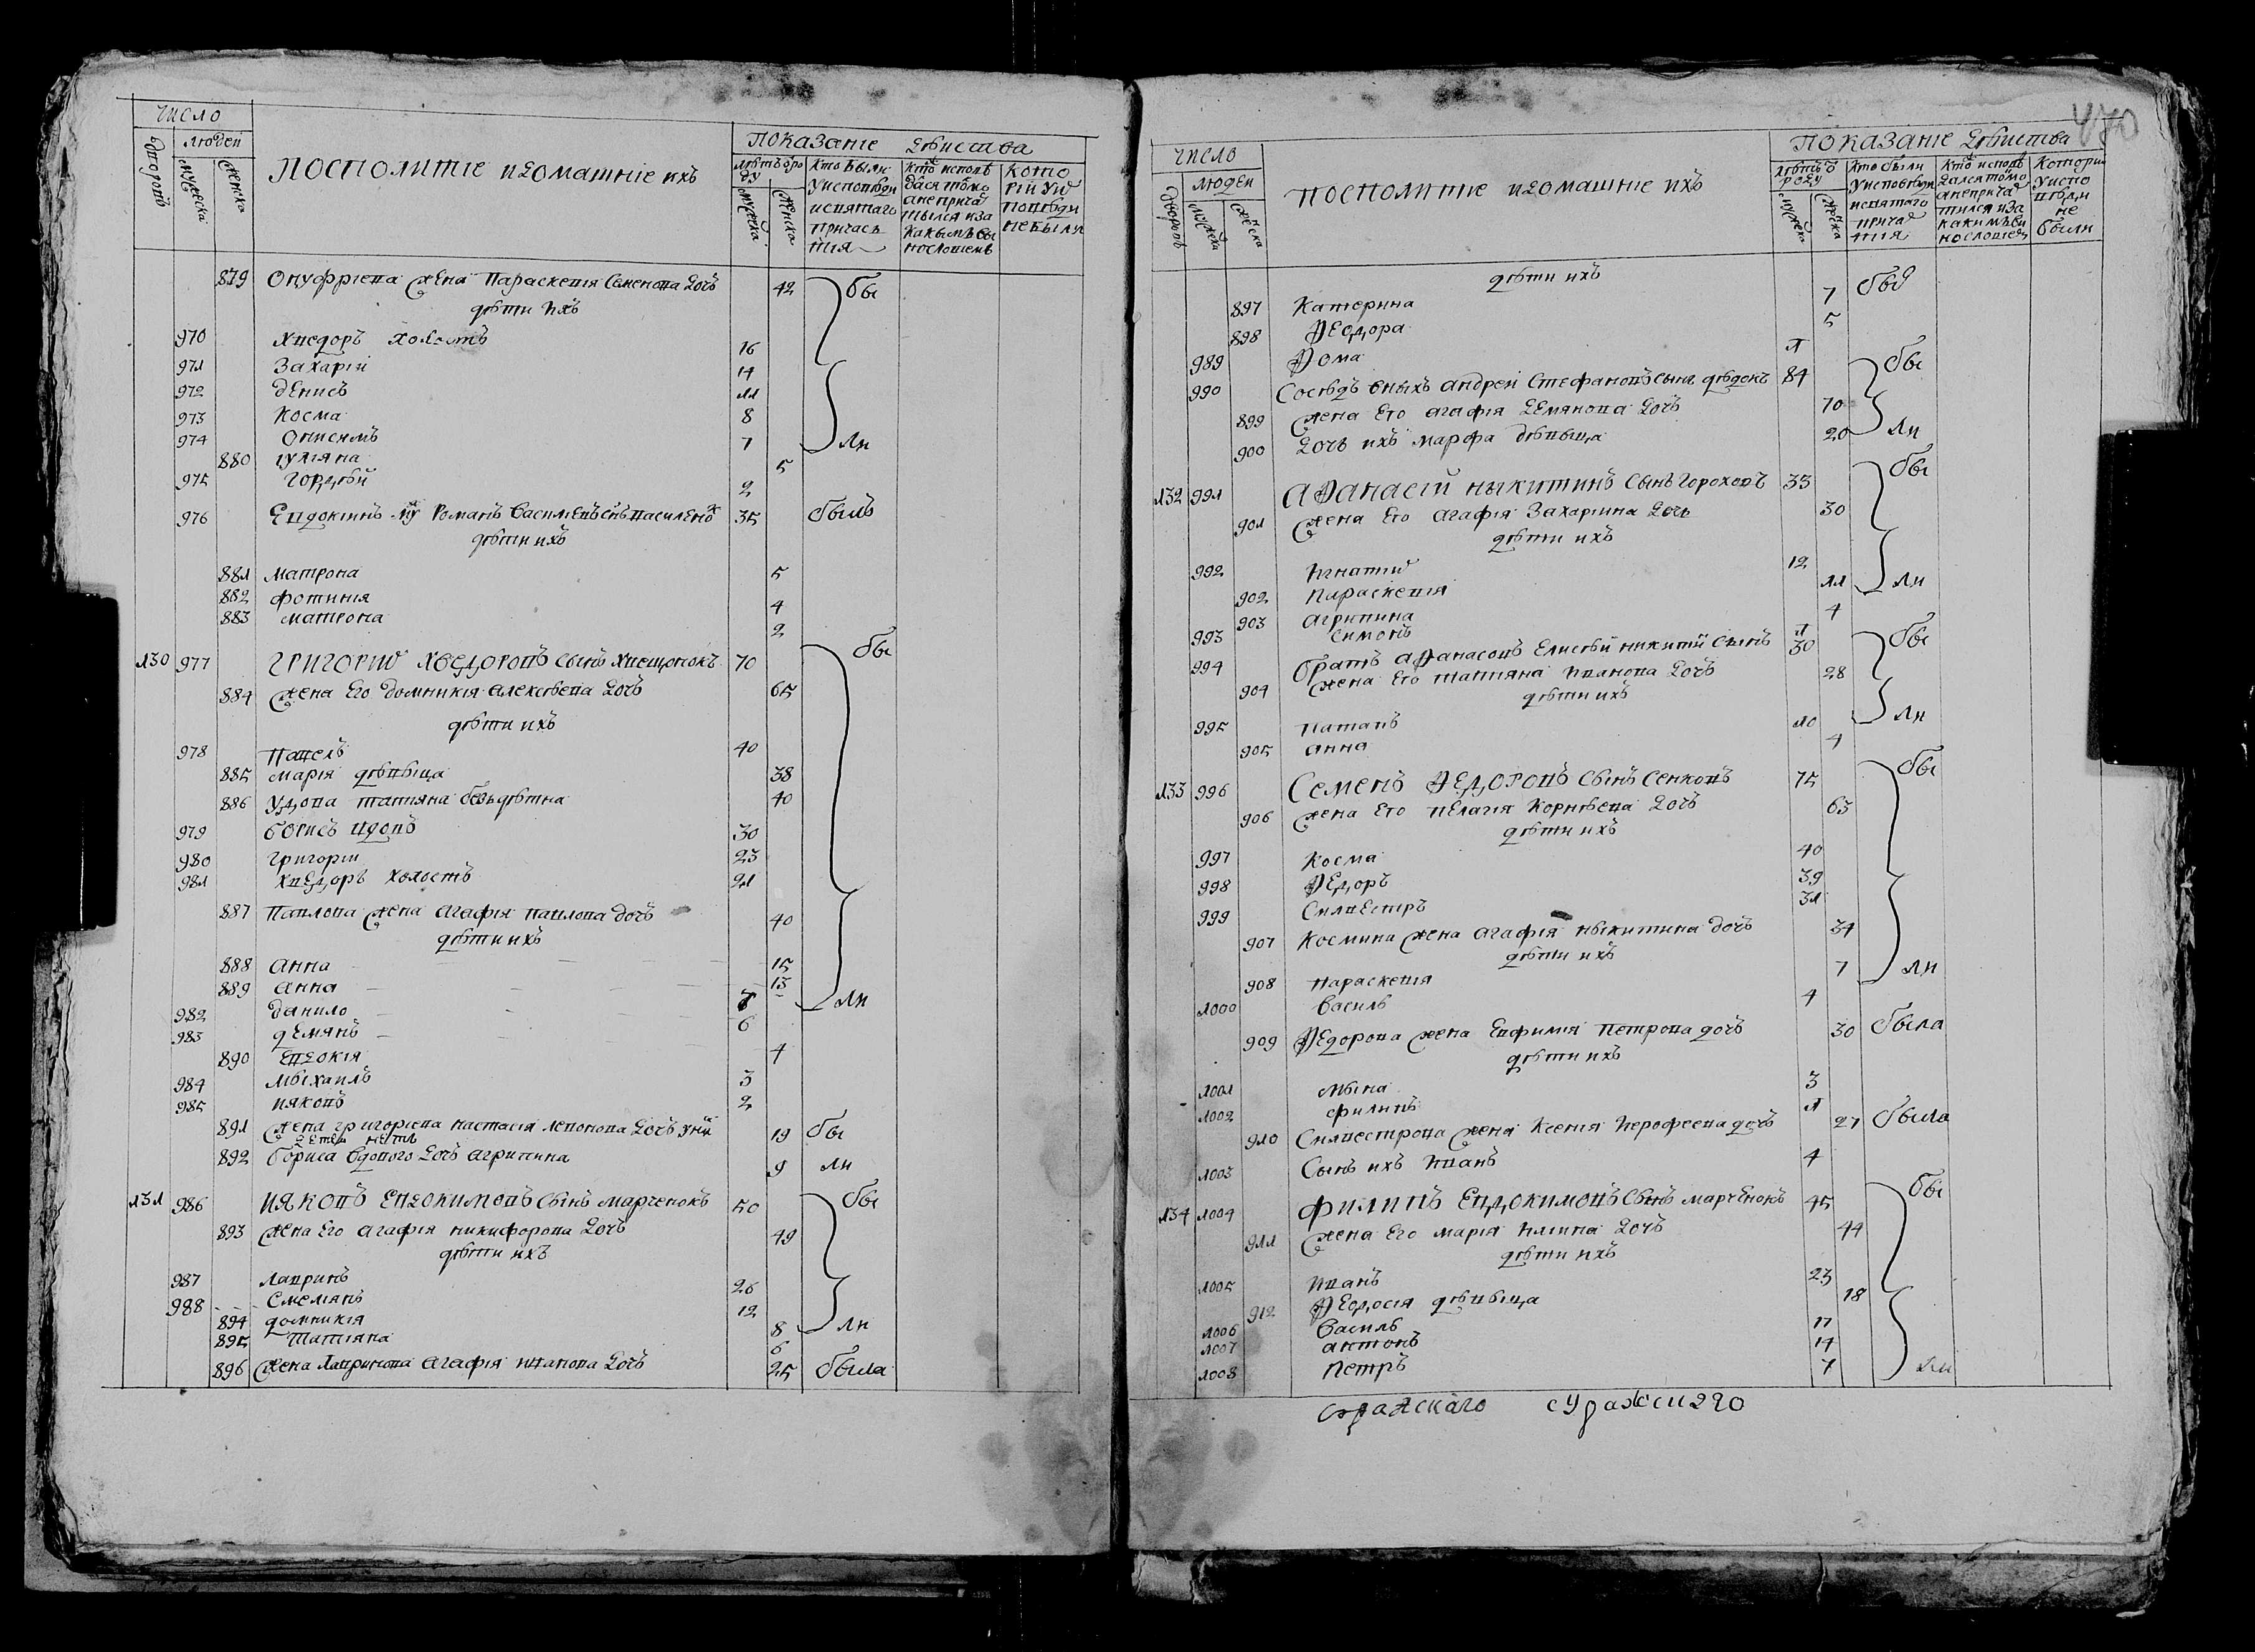 число
дворовъ
людей
мужеска
женска
посполитіе и домашніе ихъ
показаніе действа
летъ от роду
мужеска
женска
кто были
у исповеди
и святаго
причас
тия
кто исповѣ
дался токмо
а не прича
тылся и за
какимъ ви
нословиемъ
кото
рій у ис
поведи
не были
879 Онуфріева жена Параскевія Семенова дочъ 42 бы
дѣти ихъ
970 Хведоръ холостъ 16
971 Захарій 14
972 Денисъ 11
973 Косма 8
974 Онисимъ 7 ли
880 Іуліяна 5
975 Гордѣй 2
976 Евдокіинъ муж Романъ Васильевъ снъ Василенок 35 былъ
дѣти ихъ
881 Матрона 5
882 Фотинія 4
883 Матрона 2
130 977 Григорій Хведоровъ сынъ Хвещонокъ 70 бы
884 жена его Домникія Алексѣева дочъ 65
дѣти ихъ
978 Павелъ 40
885 Марія дѣвыца 38
886 Удова Татіяна бездѣтна 40
979 Борисъ вдовъ 30
980 Григорій 23
981 Хведоръ холостъ 21
887 Павлова жена Агафія Павлова дочъ 40
дѣти ихъ
888 Анна 15
889 Анна 13 ли
982 Данило 7
983 Демянъ 6
890 Евдокія 4
984 Мыхаилъ 3
985 Ияковъ 2
891 жена Григоріева Настасія Леонова дочъ у них 19 бы
детей нетъ
892 Бориса вдового дочъ Агрипина 9 ли
131 986 Ияковъ Евдокимовъ сынъ Марченокъ 50 бы
893 жена его Агафія Никифорова дочъ 49
дѣти ихъ
987 Лавринъ 26
988 Смемянъ 12
894 Домникія 8 ли
895 Татіяна 6
896 жена Лавринова Агафія Иванова дочъ 25 была
470
число
дворовъ
людей
мужеска
женска
посполитіе и домашніе ихъ
показаніе действа
летъ от
роду
мужеска
женска
кто были
у исповѣди
и святаго
прича
тия
кто исповѣ
дался токмо
а не прича
тился и за
какимъ ви
нословіем
котори
у испо
вѣди
не
были
дѣти ихъ
897 Катерина 7 был
898 Ѳеодора 5
989 Ѳома 1
990 Соседъ оныхъ Андрей Стефановъ сынъ дѣдокъ 84 бы
899 жена его Агафія Демянова дочъ 70
900 дочъ ихъ Марфа дѣвыца 20 ли
132 991 Аѳанасій Ныкитинъ сынъ Гороховъ 35 бы
901 жена его Агафія Захаріина дочъ 30
дѣти ихъ
992 Игнатій 12
902 Параскевія 11 ли
903 Агрипина 4
993 Симонъ 1
994 братъ Аѳанасовъ Елисѣй Никитинъ сынъ 30 бы
904 жена его Татіяна Иванова дочъ 28
дѣти ихъ
995 Патапъ 10 ли
905 Анна 4
133 996 Семенъ Ѳедоровъ сынъ Сенковъ 75 бы
906 жена его Пелагія Корнѣева дочъ 63
дѣти ихъ
997 Косма 40
998 Ѳедоръ 39
999 Силвестръ 31
907 Космина жена Агафія Ныкитина дочъ 34
дѣти ихъ
908 Параскевія 7 ли
1000 Василь 4
909 Ѳедорова жена Евфимія Петрова дочъ 30 была
дѣти ихъ
1001 Мына 3
1002 Филипъ 1
910 Силвестрова жена Ксенія Иерофеева дочъ 27 была
1003 Сынъ ихъ Иванъ 4
134 1004 Филипъ Евдокимовъ сынъ Марченокъ 45 бы
911 жена его Марія Илиина дочъ 44
дѣти ихъ
1005 Иванъ 23
912 Ѳеодосія дѣвыца 18
1006 Василь 17
1007 Антонъ 14
1008 Петръ 7 ли